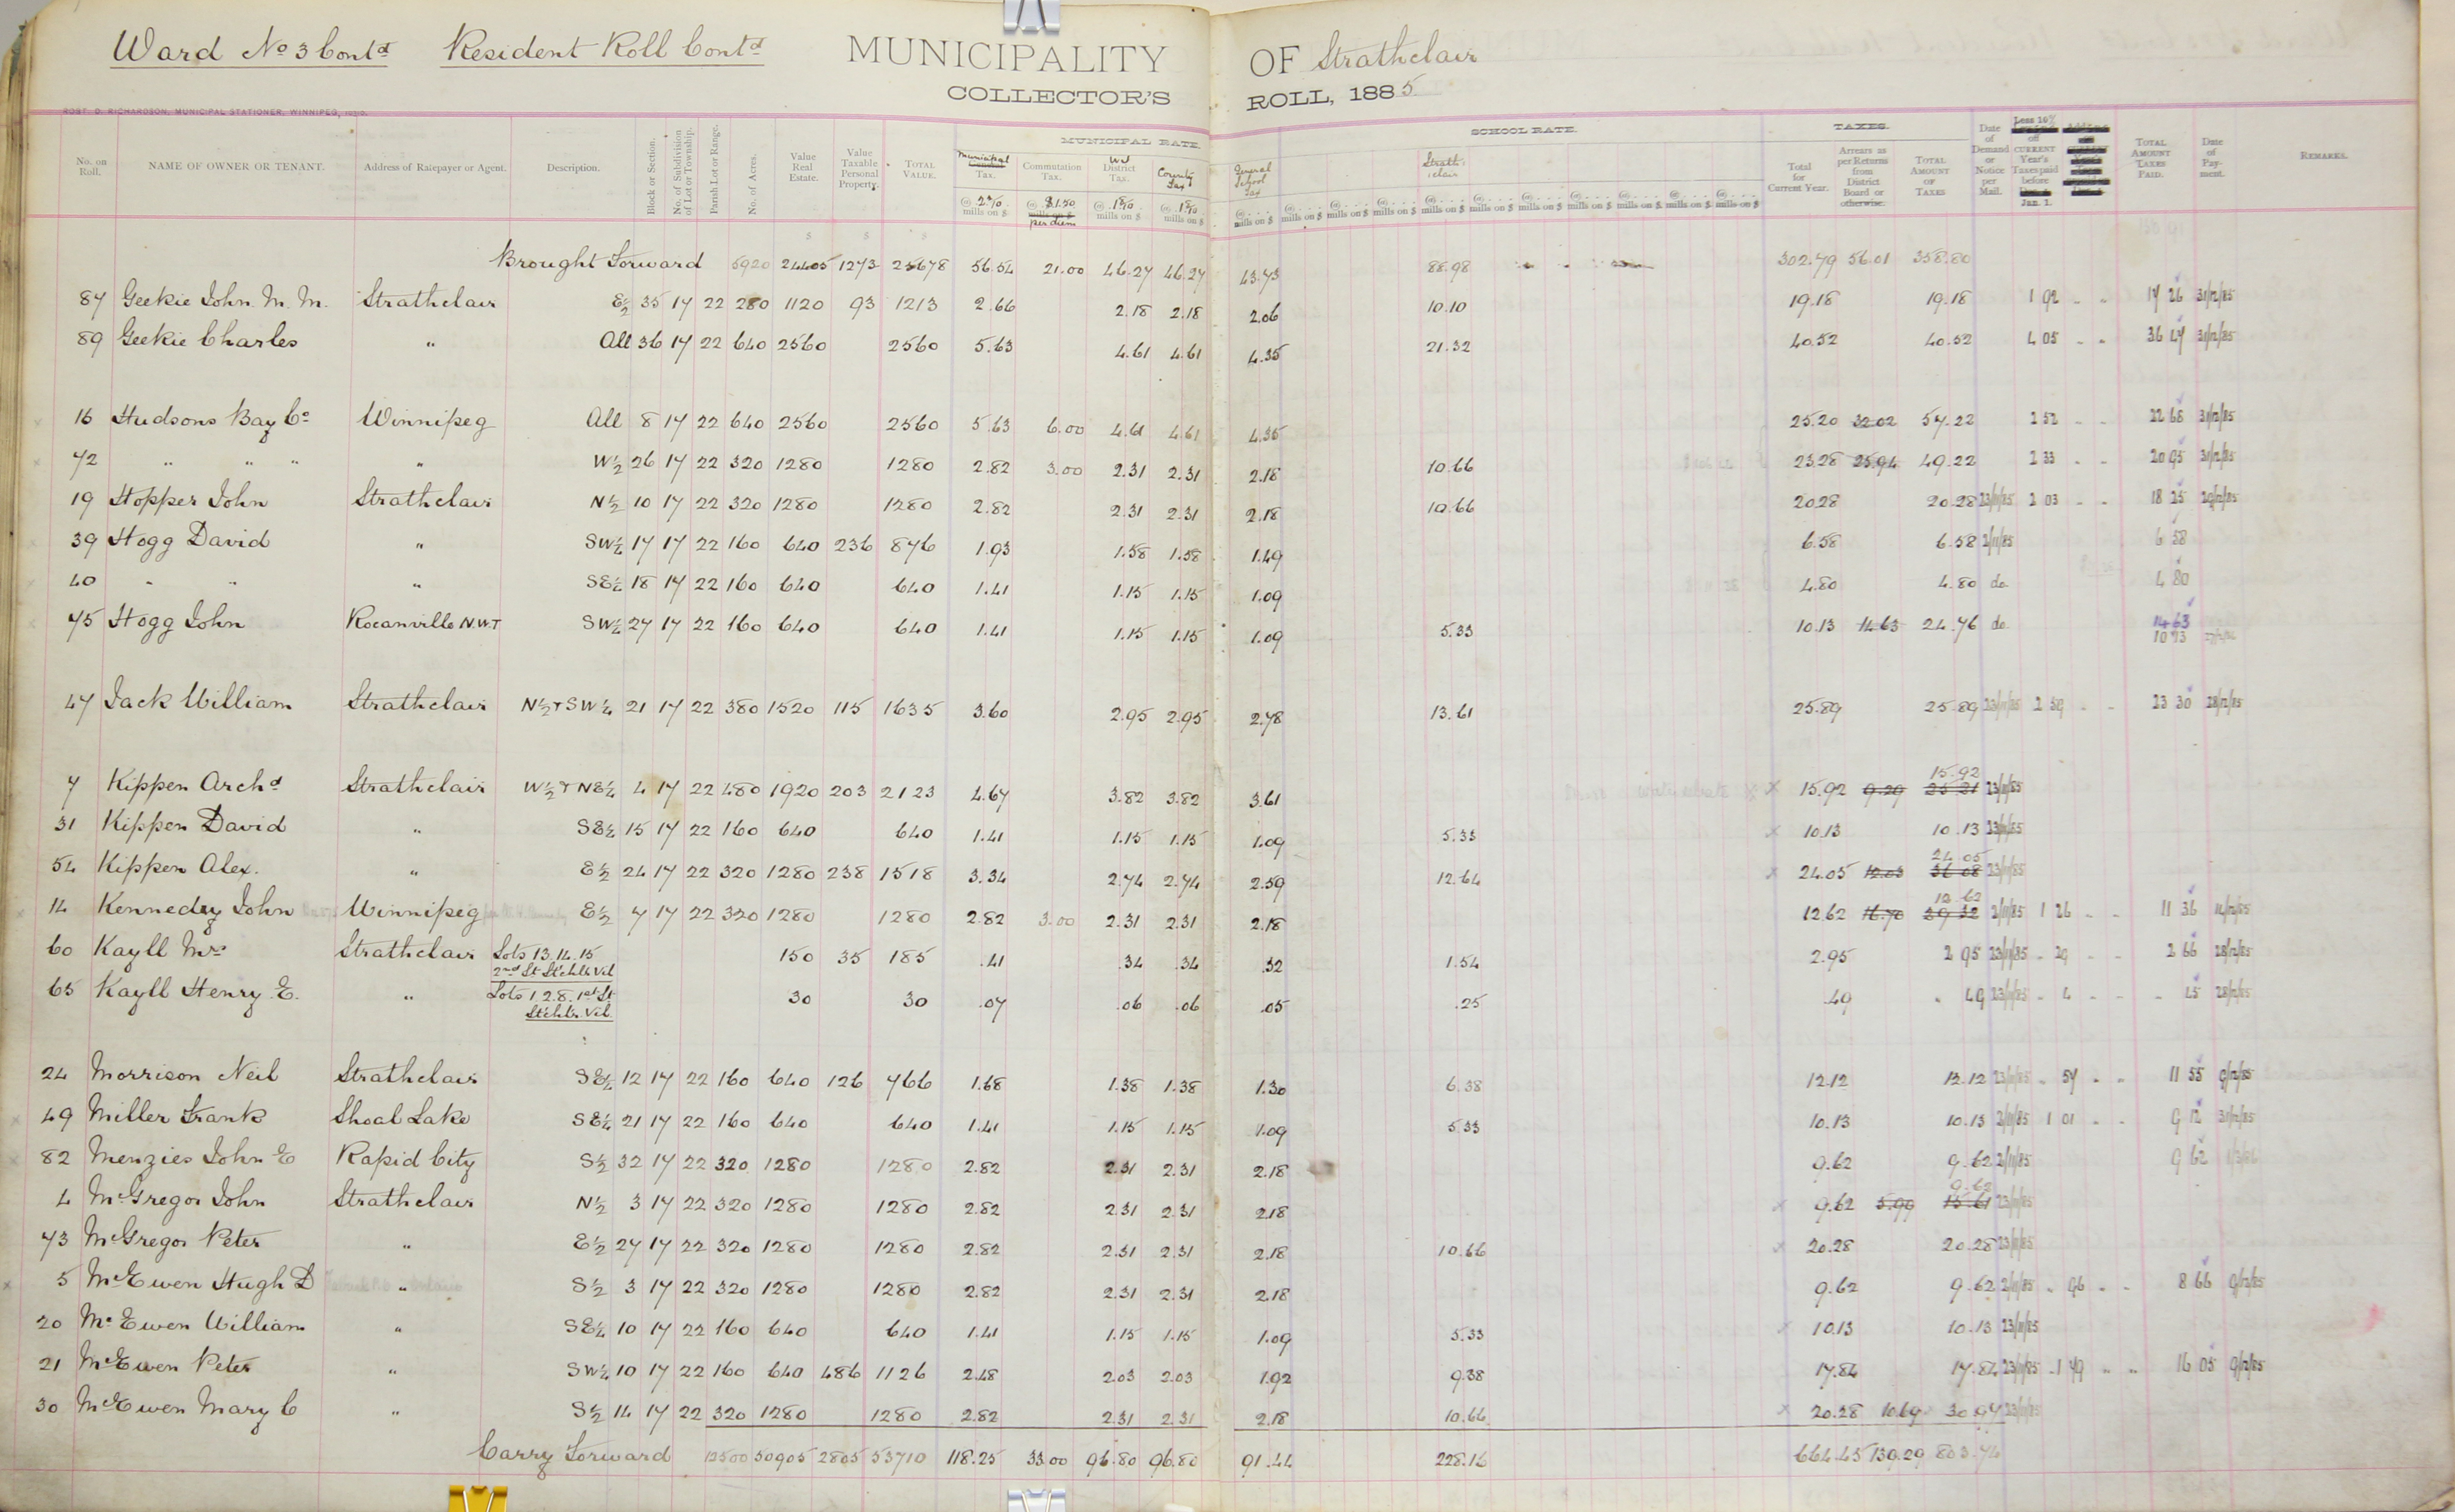 Ward No 3 Contd Resident Roll Contd MUNICIPALITY OF Strathclair
COLLECTOR'S ROLL, 1885
ROBT. D. RICHARDSON, MUNICIPAL STATIONER, WINNIPEG,
MUNICIPAL RATE. SCHOOL RATE. TAXES.
No. on Roll. NAME OF OWNER OR TENANT. Address of Ratepayer or Agent. Description. Block or Section. No. of Subdivision of Lot or Township. Parish Lot or Range. No. of Acres. Value Real Estate. Value Taxable Personal Property. TOTAL VALUE. Municipal Tax. Commutation Tax. Wd District Tax. County Tax General School Tax Strathclair Total for Current Year. Arrears as per Returns from District Board or otherwise. TOTAL AMOUNT OF TAXES Date of Demand or Notice per Mail. Less 10% off CURRENT Year's Taxes paid before Jan. 1. TOTAL AMOUNT TAXES PAID. Date of Payment. REMARKS.
mills on $ $1.50 per diem mills on $ mills on $ mills on $ mills on $ mills on $ mills on $ mills on $ mills on $ mills on $ mills on $ mills on $ mills on $ mills on $
Brought Forward 5920 24405 1273 25678 56.54 21.00 46.27 46.27 43.73 88.98 302.79 56.01 358.80
87 Geekie John M. M. Strathclair E½ 35 17 22 280 1120 93 1213 2.66 2.18 2.18 2.06 10.10 19.18 19.18 1 92 17 26 31/12/85
89 Geekie Charles " All 36 17 22 640 2560 2560 5.63 4.61 4.61 4.35 21.32 40.52 40.52 4 05 36 47 31/12/85
16 Hudsons Bay Co Winnipeg All 8 17 22 640 2560 2560 5.63 6.00 4.61 4.61 4.35 25.20 32.02 57.22 2 52 22 68 31/12/85
72 " " " " W½ 26 17 22 320 1280 1280 2.82 3.00 2.31 2.31 2.18 10.66 23.28 25.94 49.22 2 33 20 95 31/12/85
19 Hopper John Strathclair N½ 10 17 22 320 1280 1280 2.82 2.31 2.31 2.18 10.66 20.28 20.28 23/11/85 2 03 18 25 29/12/85
39 Hogg David " SW¼ 17 17 22 160 640 236 876 1.93 1.58 1.58 1.49 6.58 6.58 2/11/85 6 58
40 " " " SE¼ 18 17 22 160 640 640 1.41 1.15 1.15 1.09 4.80 4.80 do 4 80
75 Hogg John Rocanville N.W.T SW¼ 27 17 22 160 640 640 1.41 1.15 1.15 1.09 5.33 10.13 14.63 24.76 do 14 63
10 13
47 Jack William Strathclair N½ + SW¼ 21 17 22 380 1520 115 1635 3.60 2.95 2.95 2.78 13.61 25.89 25.89 23/11/85 2 59 23 30 28/12/85
15.92
7 Kippen Archd Strathclair W½ + NE¼ 4 17 22 480 1920 203 2123 4.67 3.82 3.82 3.61 x 15.92 9.29 25 21 23/11/85
31 Kippen David " SE¼ 15 17 22 160 640 640 1.41 1.15 1.15 1.09 5.33 x 10.13 10.13 23/11/85
24 05
54 Kippen Alex. " E½ 24 17 22 320 1280 238 1518 3.34 2.74 2.74 2.59 12.64 x 24.05 12.03 36 08 23/11/85
12 62
14 Kennedey John Winnipeg E½ 7 17 22 320 1280 1280 2.82 3.00 2.31 2.31 2.18 12.62 16.70 29 32 2/11/85 1 26 11 36 11/12/85
60 Kayll Mrs Strathclair Lots 13.14.15 150 35 185 .41 .34 .34 .32 1.54 2.95 2 95 23/11/85 29 2 66 28/12/85
2nd St St'chlr Vil
65 Kayll Henry E. " Lots 1.2.8. 1st St 30 30 .07 .06 .06 .05 .25 .49 .49 23/11/85 4 45 28/12/85
St'chlr. Vil.
24 Morrison Neil Strathclair SE¼ 12 17 22 160 640 126 766 1.68 1.38 1.38 1.30 6.38 12.12 12.12 23/11/85 57 11 55 9/12/85
49 Miller Frank Shoal Lake SE¼ 21 17 22 160 640 640 1.41 1.15 1.15 1.09 5.33 10.13 10.13 2/11/85 1 01 9 12 31/12/85
82 Menzies John E Rapid City S½ 32 17 22 320 1280 1280 2.82 2.31 2.31 2.18 9.62 9.62 2/11/85 9 62
9.62
4 McGregor John Strathclair N½ 3 17 22 320 1280 1280 2.82 2.31 2.31 2.18 x 9.62 5.99 15.61 23/11/85
73 McGregor Peter " E½ 27 17 22 320 1280 1280 2.82 2.31 2.31 2.18 10.66 x 20.28 20.28 23/11/85
5 McEwen Hugh D " S½ 3 17 22 320 1280 1280 2.82 2.31 2.31 2.18 9.62 9.62 2/11/85 96 8 66 9/12/85
20 McEwen William " SE¼ 10 17 22 160 640 640 1.41 1.15 1.15 1.09 5.33 x 10.13 10.13 23/11/85
21 McEwen Peter " SW¼ 10 17 22 160 640 486 1126 2.48 2.03 2.03 1.92 9.38 17.84 17.84 23/11/85 1 79 16 05 9/12/85
30 McEwen Mary C " S½ 14 17 22 320 1280 1280 2.82 2.31 2.31 2.18 10.66 x 20.28 10.69 30.97 23/11/85
Carry Forward 12500 50905 2805 53710 118.25 33.00 96.80 96.80 91.44 228.16 664.45 139.29 803.74